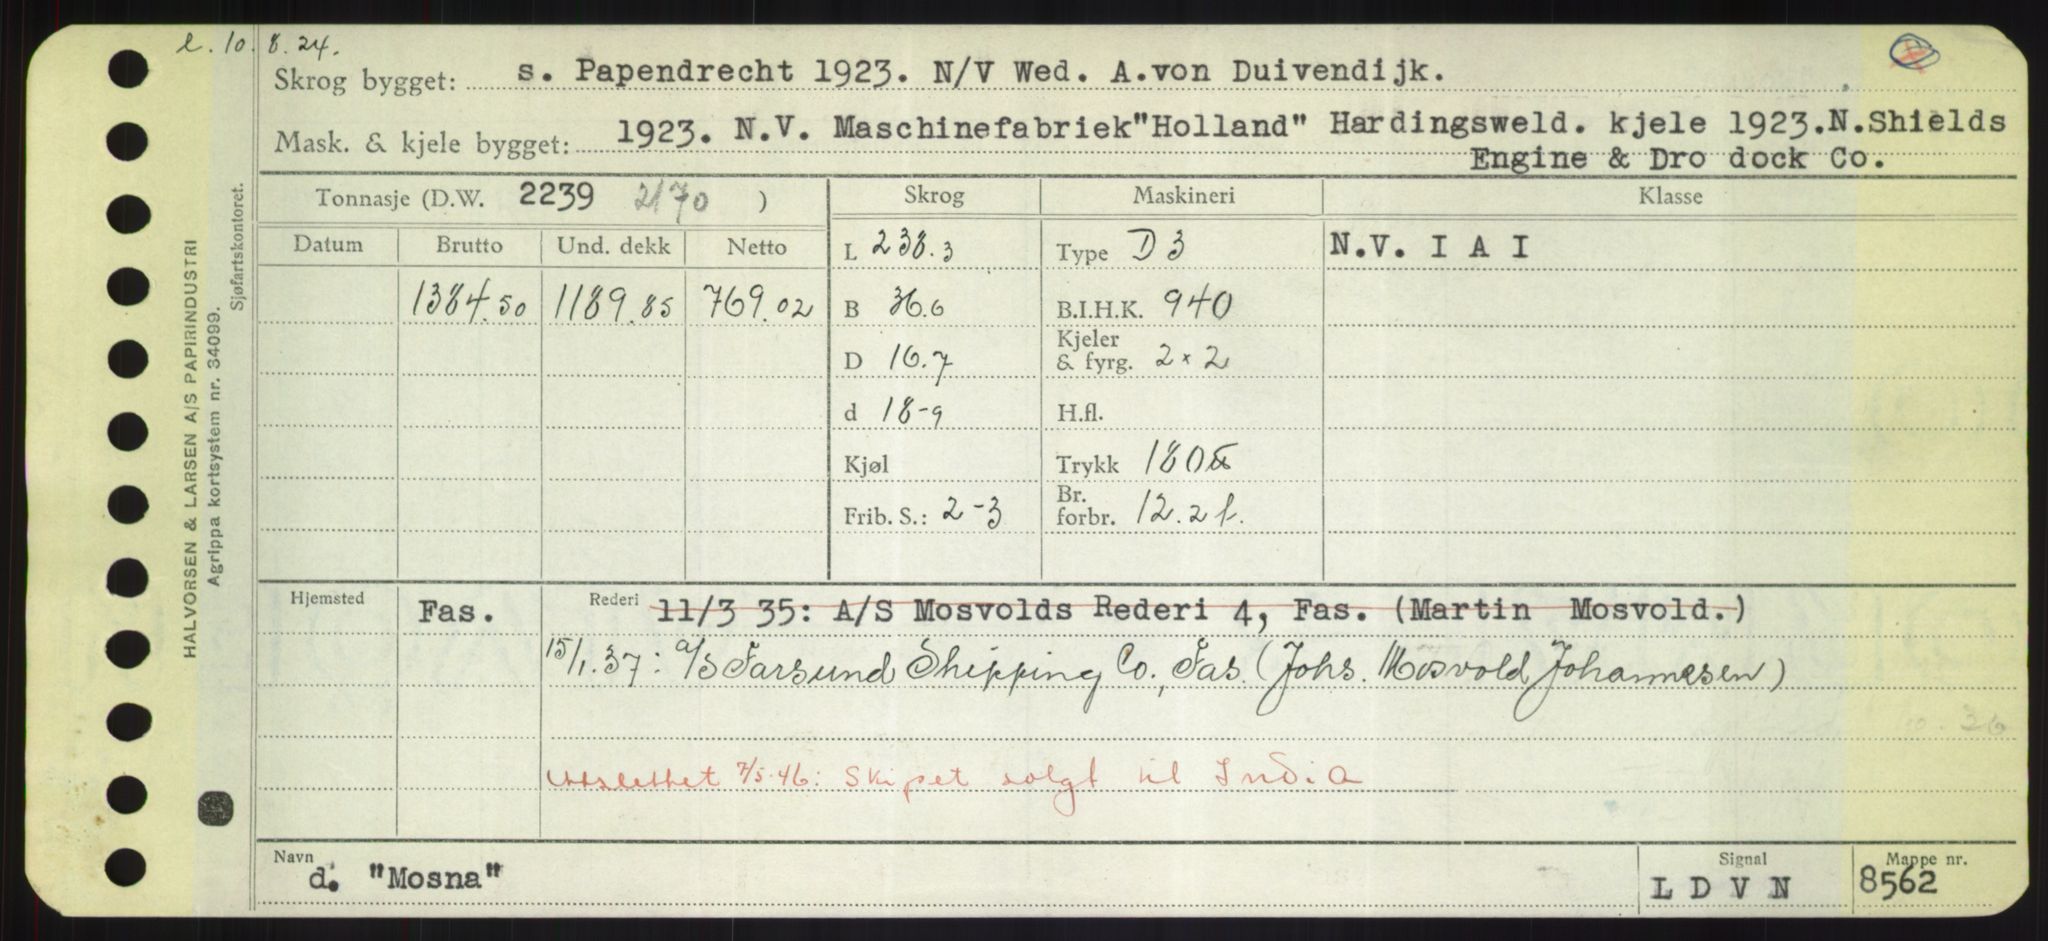 l. 10. 8. 24.
Skrog bygget: s. Papendrecht 1923. N/V Wed. A.von Duivendijk.
Mask. & kjele bygget: 1923. N.V. Maschinefabriek"Holland" Hardingsweld. kjele 1923.N.Shields
Engine & Dro dock Co.
HALVORSEN & LARSEN A/S PAPIRINDUSTRI
Agrippa kortsystem nr. 34099.
Sjøfartskontoret.
Tonnasje (D.W. 2239 2170 ) Skrog Maskineri Klasse
Datum Brutto Und. dekk Netto L 238.3 Type D 3 N.V. I A I
1384.50 1189.85 769.02 B 36.6 B.I.H.K. 940
D 16.7 Kjeler & fyrg. 2 × 2
d 18-9 H.fl.
Kjøl Trykk 180
Frib. S.: 2-3 Br. forbr. 12.2 t.
Hjemsted Fas. Rederi 11/3 35: A/S Mosvolds Rederi 4, Fas. (Martin Mosvold.)
15/1.37: a/s Farsund Shipping Co., Fas. (Johs. Mosvold Johannesen)
10.36
Utslettet 7/5.46: Skipet solgt til India
Navn d. "Mosna" Signal L D V N Mappe nr. 8562